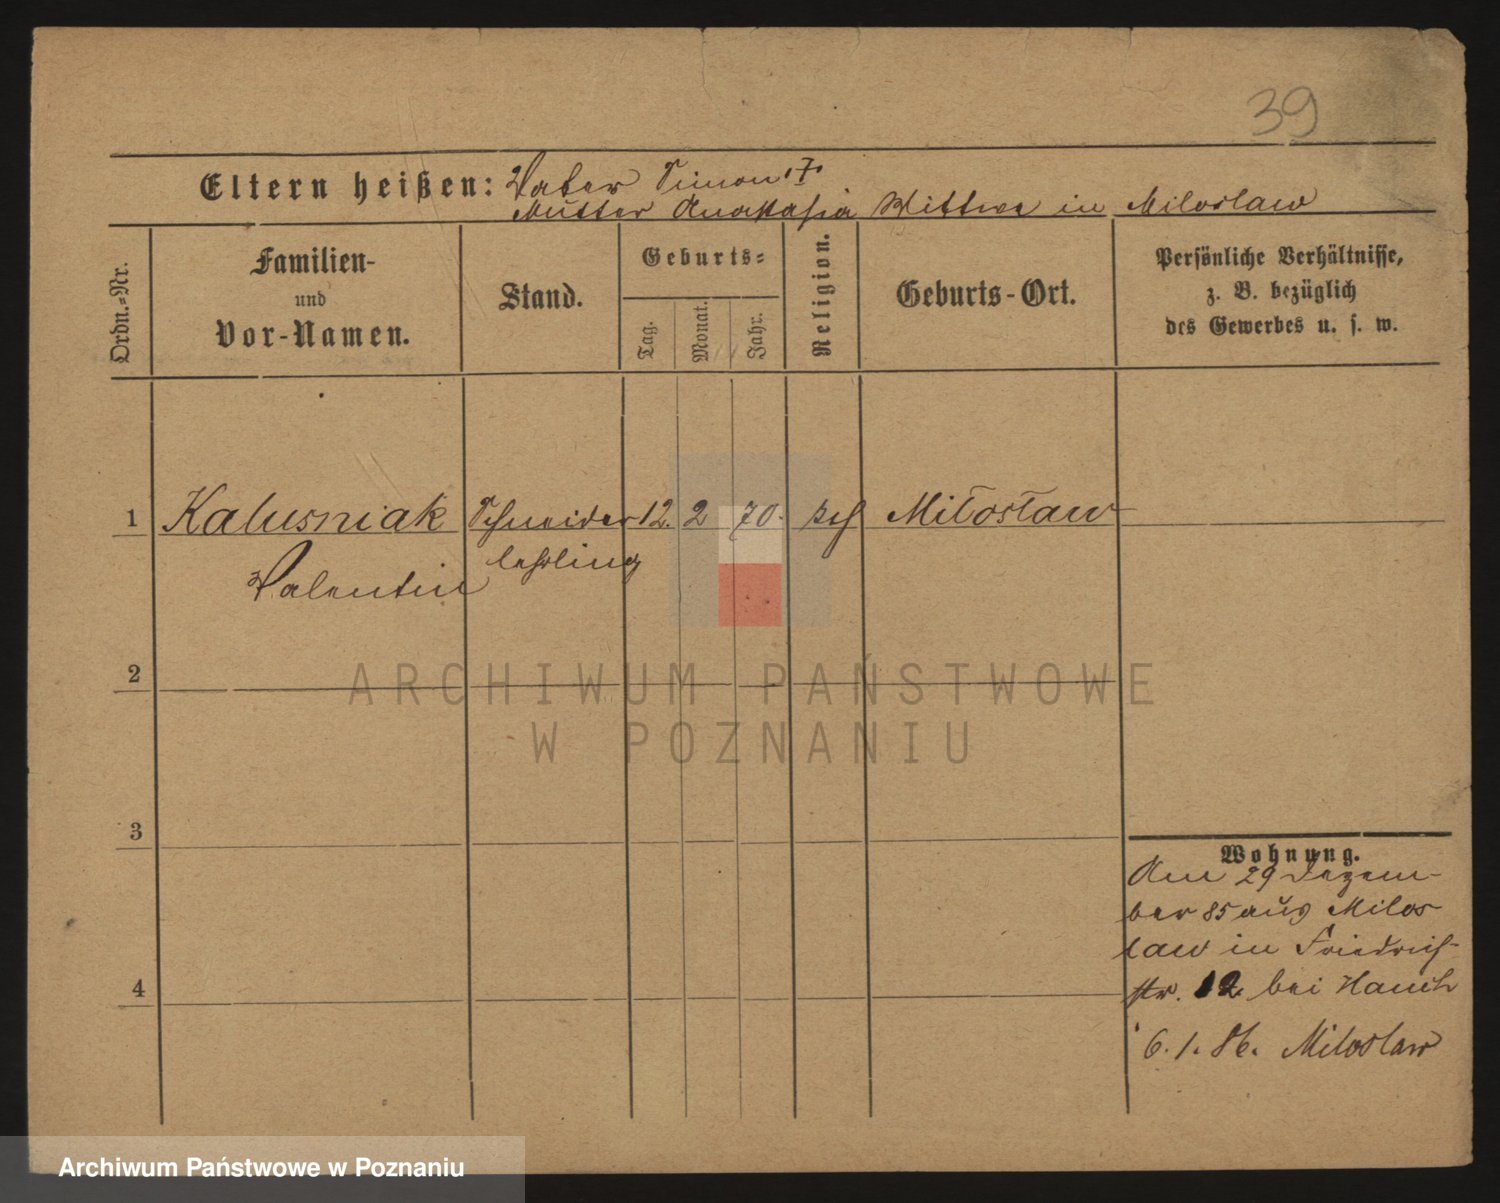 39
Eltern heißen: Vater Simon †
Mutter Anastasia Wittwe in Miloslaw
Ordn.=Nr.
Familien-
und
Vor-Namen.
Stand.
Geburts=
Tag.
Monat.
Jahr.
Religion.
Geburts-Ort.
Persönliche Verhältnisse,
z. B. bezüglich
des Gewerbes u. s. w.
1 Kalusniak Schneider 12. 2 70. kth Miłosław
Valentin lehrling
2
3
4
Wohnung.
Am 29 Dezem-
ber 85 aus Milos
law in Friedrich-
str. 12. bei Hauch
6. 1. 86. Miloslaw
ARCHIWUM PAŃSTWOWE
W POZNANIU
Archiwum Państwowe w Poznaniu